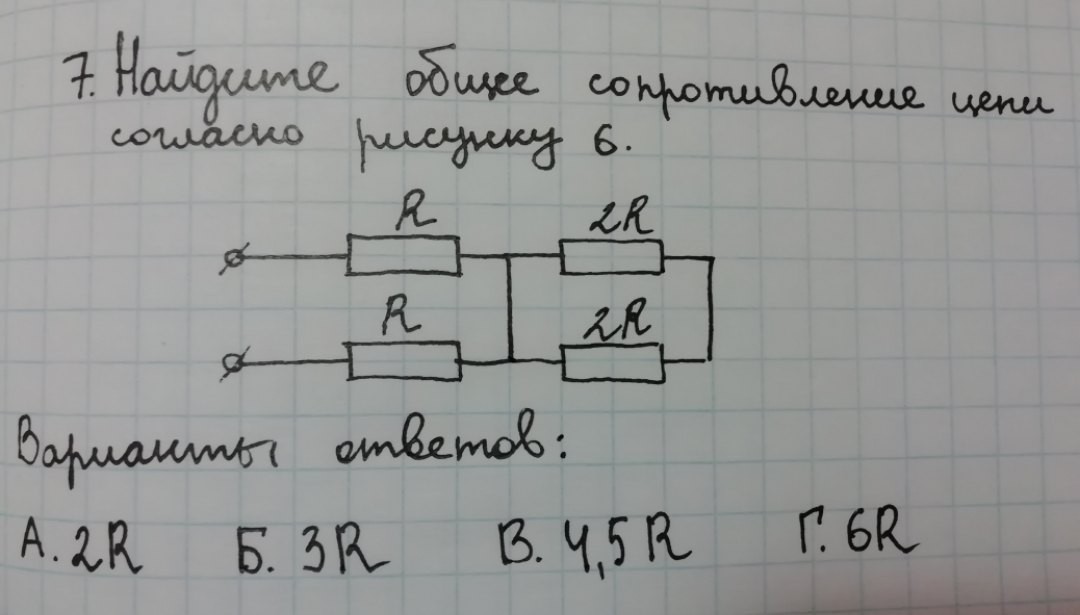 7. Найдите общее сопротивление цепи
согласно рисунку 6.
R 2R
R 2R
Варианты ответов:
А. 2R Б. 3R В. 4,5R Г. 6R